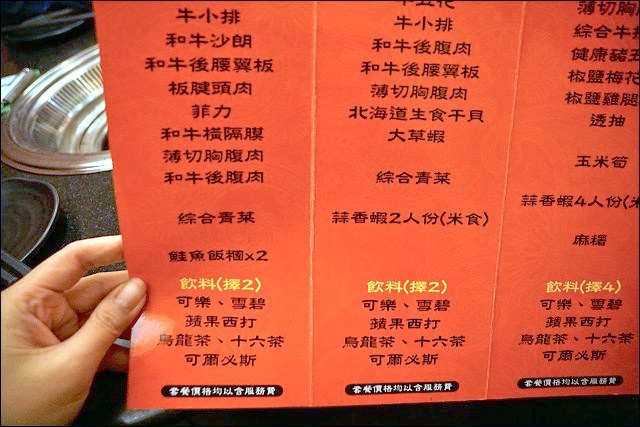 牛小排
和牛沙朗
和牛後腰翼板
板腱頭肉
菲力
和牛橫隔膜
薄切胸腹肉
和牛後腹肉
綜合青菜
鮭魚飯糰x2
飲料(擇2)
可樂、雪碧
蘋果西打
烏龍茶、十六茶
可爾必斯
套餐價格均以含服務費
牛小排
和牛後腹肉
和牛後腰翼板
薄切胸腹肉
北海道生食干貝
大草蝦
綜合青菜
蒜香蝦2人份(米食)
飲料(擇2)
可樂、雪碧
蘋果西打
烏龍茶、十六茶
可爾必斯
套餐價格均以含服務費
薄切胸
綜合牛
健康豬五
椒鹽梅花
椒鹽雞腿
透抽
玉米筍
蒜香蝦4人份(米
麻糬
飲料(擇4)
可樂、雪碧
蘋果西打
烏龍茶、十六茶
可爾必斯
套餐價格均以含服務費